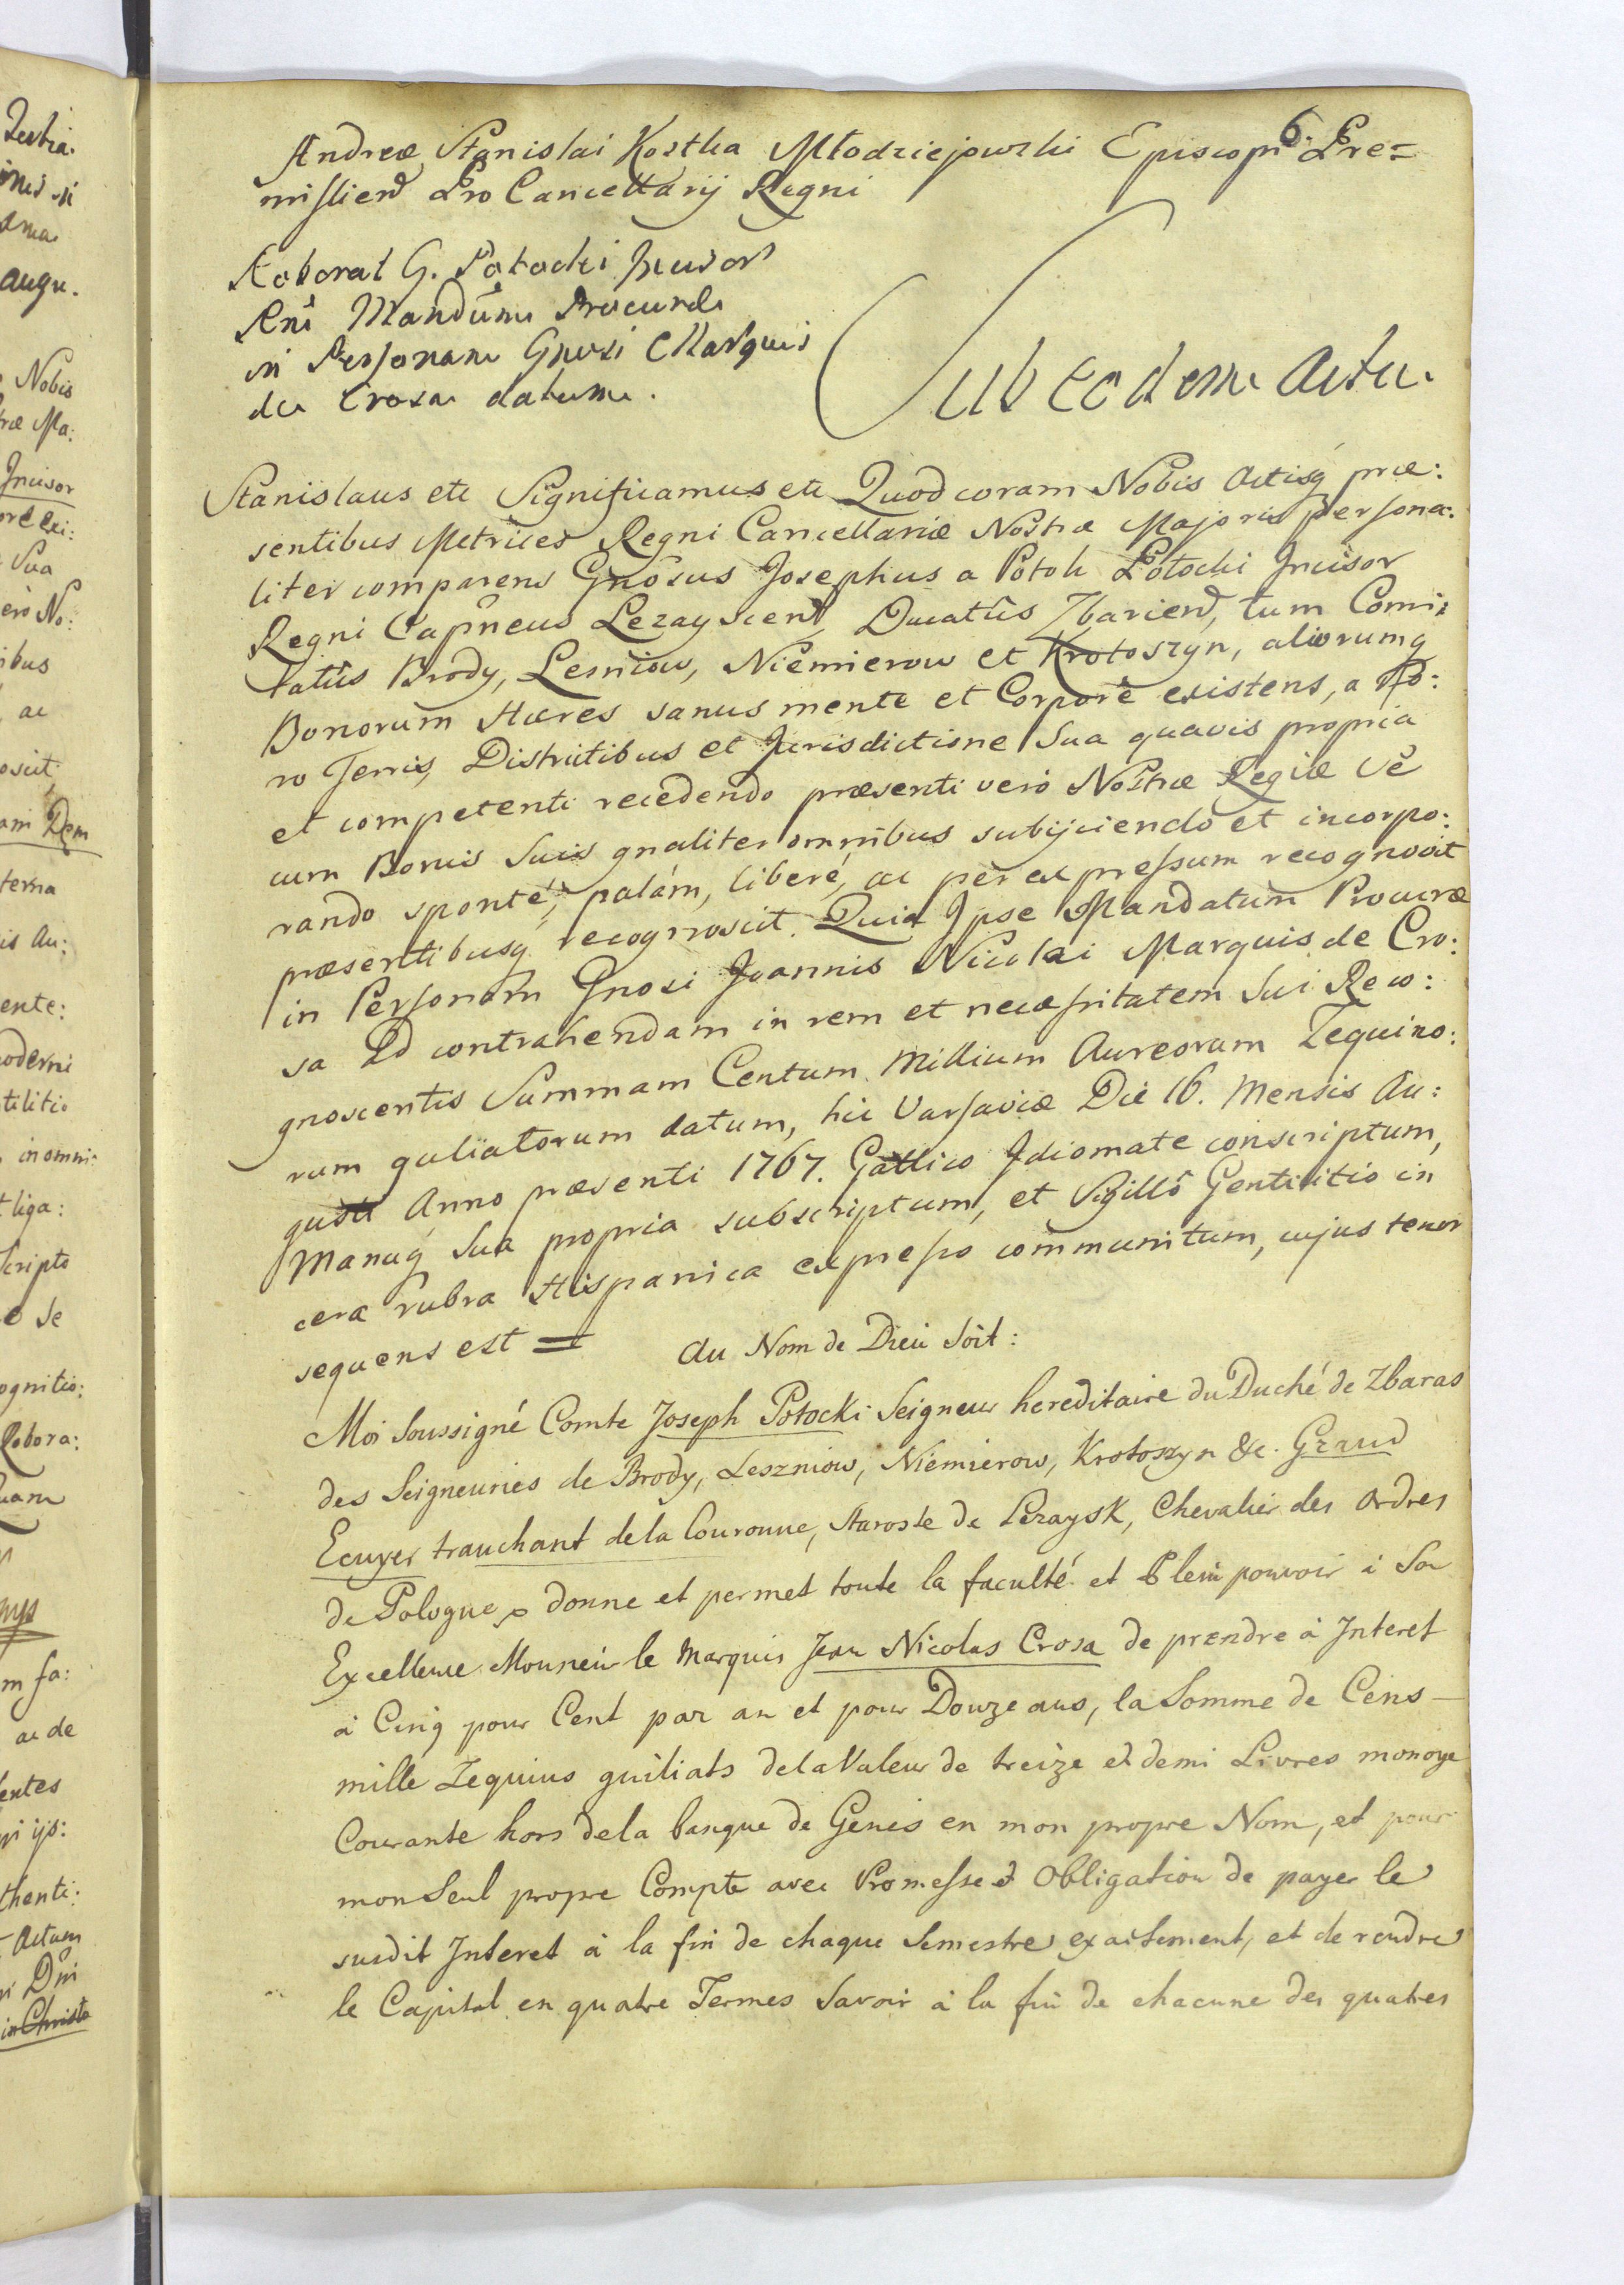 6.
Andreæ Stanislai Kostka Młodziejowski Episcopi Pre=
mislien Pro Cancellarij Regni
Roborat G. Potocki Incisor
Rni Mandûm Procuræ
in Personam Gnosi Marquis
de Crosa datum.
Sub eodem Actu.
Stanislaus etc Significamus etc Quod coram Nobis Actisq præ:
sentibus Metrices Regni Cancellariæ Nostræ Majoris persona:
liter comparens Gnôsus Josephus a Potok Potocki Incisor
Regni Capîneus Lezayscen, Ducatûs Zbarien, tum Comi:
tatûs Brody, Lesniow, Niemierow et Krotoszyn, aliorumq
Bonorum Hæres sanus mente et Corpore existens, a
ro Terris, Districtibus et Jurisdictione Sua quavis propria
et competenti recedendo præsenti verò Nostræ Regiæ Vê
cum Bonis Suis gnaliter omnibus subijciendo et incorpo:
rando sponté, palám, liberé, ac per expressum recognovit
præsentibusq recognoscit. Quia Ipse Mandatum Procuræ
in Personam Gnosi Joannis Nicolai Marquis de Cro:
sa Ad contrahendam in rem et necessitatem Sui Reco:
gnoscentis Summam Centum Millium Aureorum Zequino:
rum guliatorum datum, hic Varsaviæ Die 16. Mensis Au:
gusti Anno præsenti 1767. Gallico Idiomate conscriptum,
Manuq Sua propria subscriptum, et Sigillô Gentilitio in
cera rubra Hispanica expresso communitum, cujus tenor
sequens est = Au Nom de Dieu Soit:
Moi Soussigné Comte Joseph Potocki Seigneur hereditaire du Duché de Zbaras
des Seigneuries de Brody, Leszniow, Niemierow, Krotoszyn &c. Grand
Ecuyer tranchant de la Couronne, Staroste de Lezaysk, Chevalier des Ordres
de Pologne donne et permet toute la faculté et Plein pouvoir à Son
Excellence Monsieur le Marquis Jean Nicolas Crosa de prendre à Interet
à Cinq pour Cent par an et pour Douze ans, la Somme de Cens
mille Zequins guiliats de la Valeur de treize et demi Livres monoye
Courante hors de la banque de Genes en mon propre Nom, et pour
mon Seul propre Compte avec Promesse et Obligation de payer le
susdit Interet à la fin de chaque Semestre exactement, et de rendre
le Capital en quatre Termes Savoir à la fin de chacune des quatres